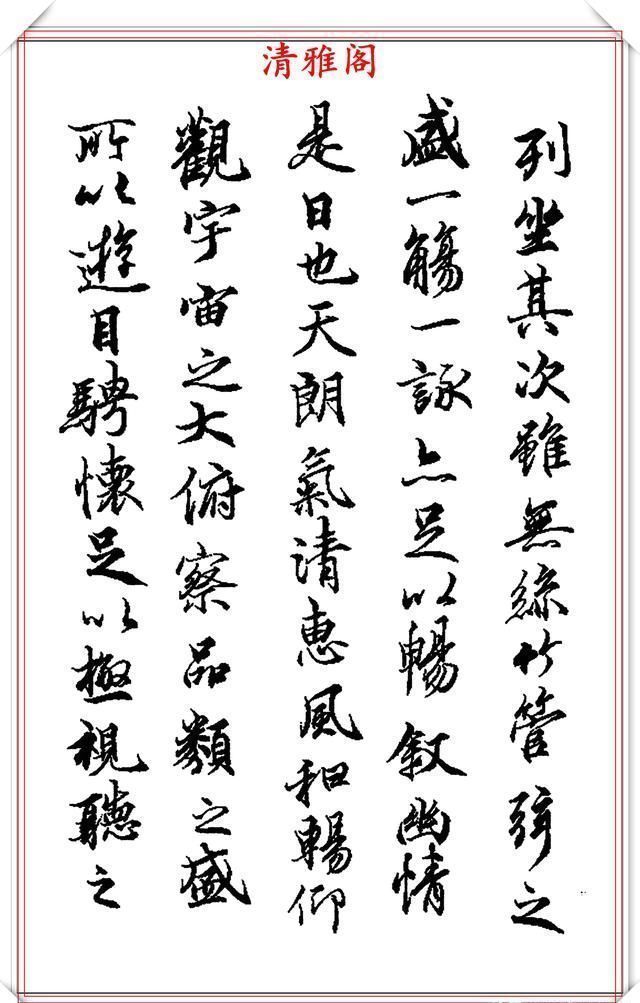 清雅阁
列坐其次雖無絲竹管弦之
盛一觴一詠亦足以暢叙幽情
是日也天朗氣清惠風和暢仰
觀宇宙之大俯察品類之盛
所以遊目騁懷足以極視聽之